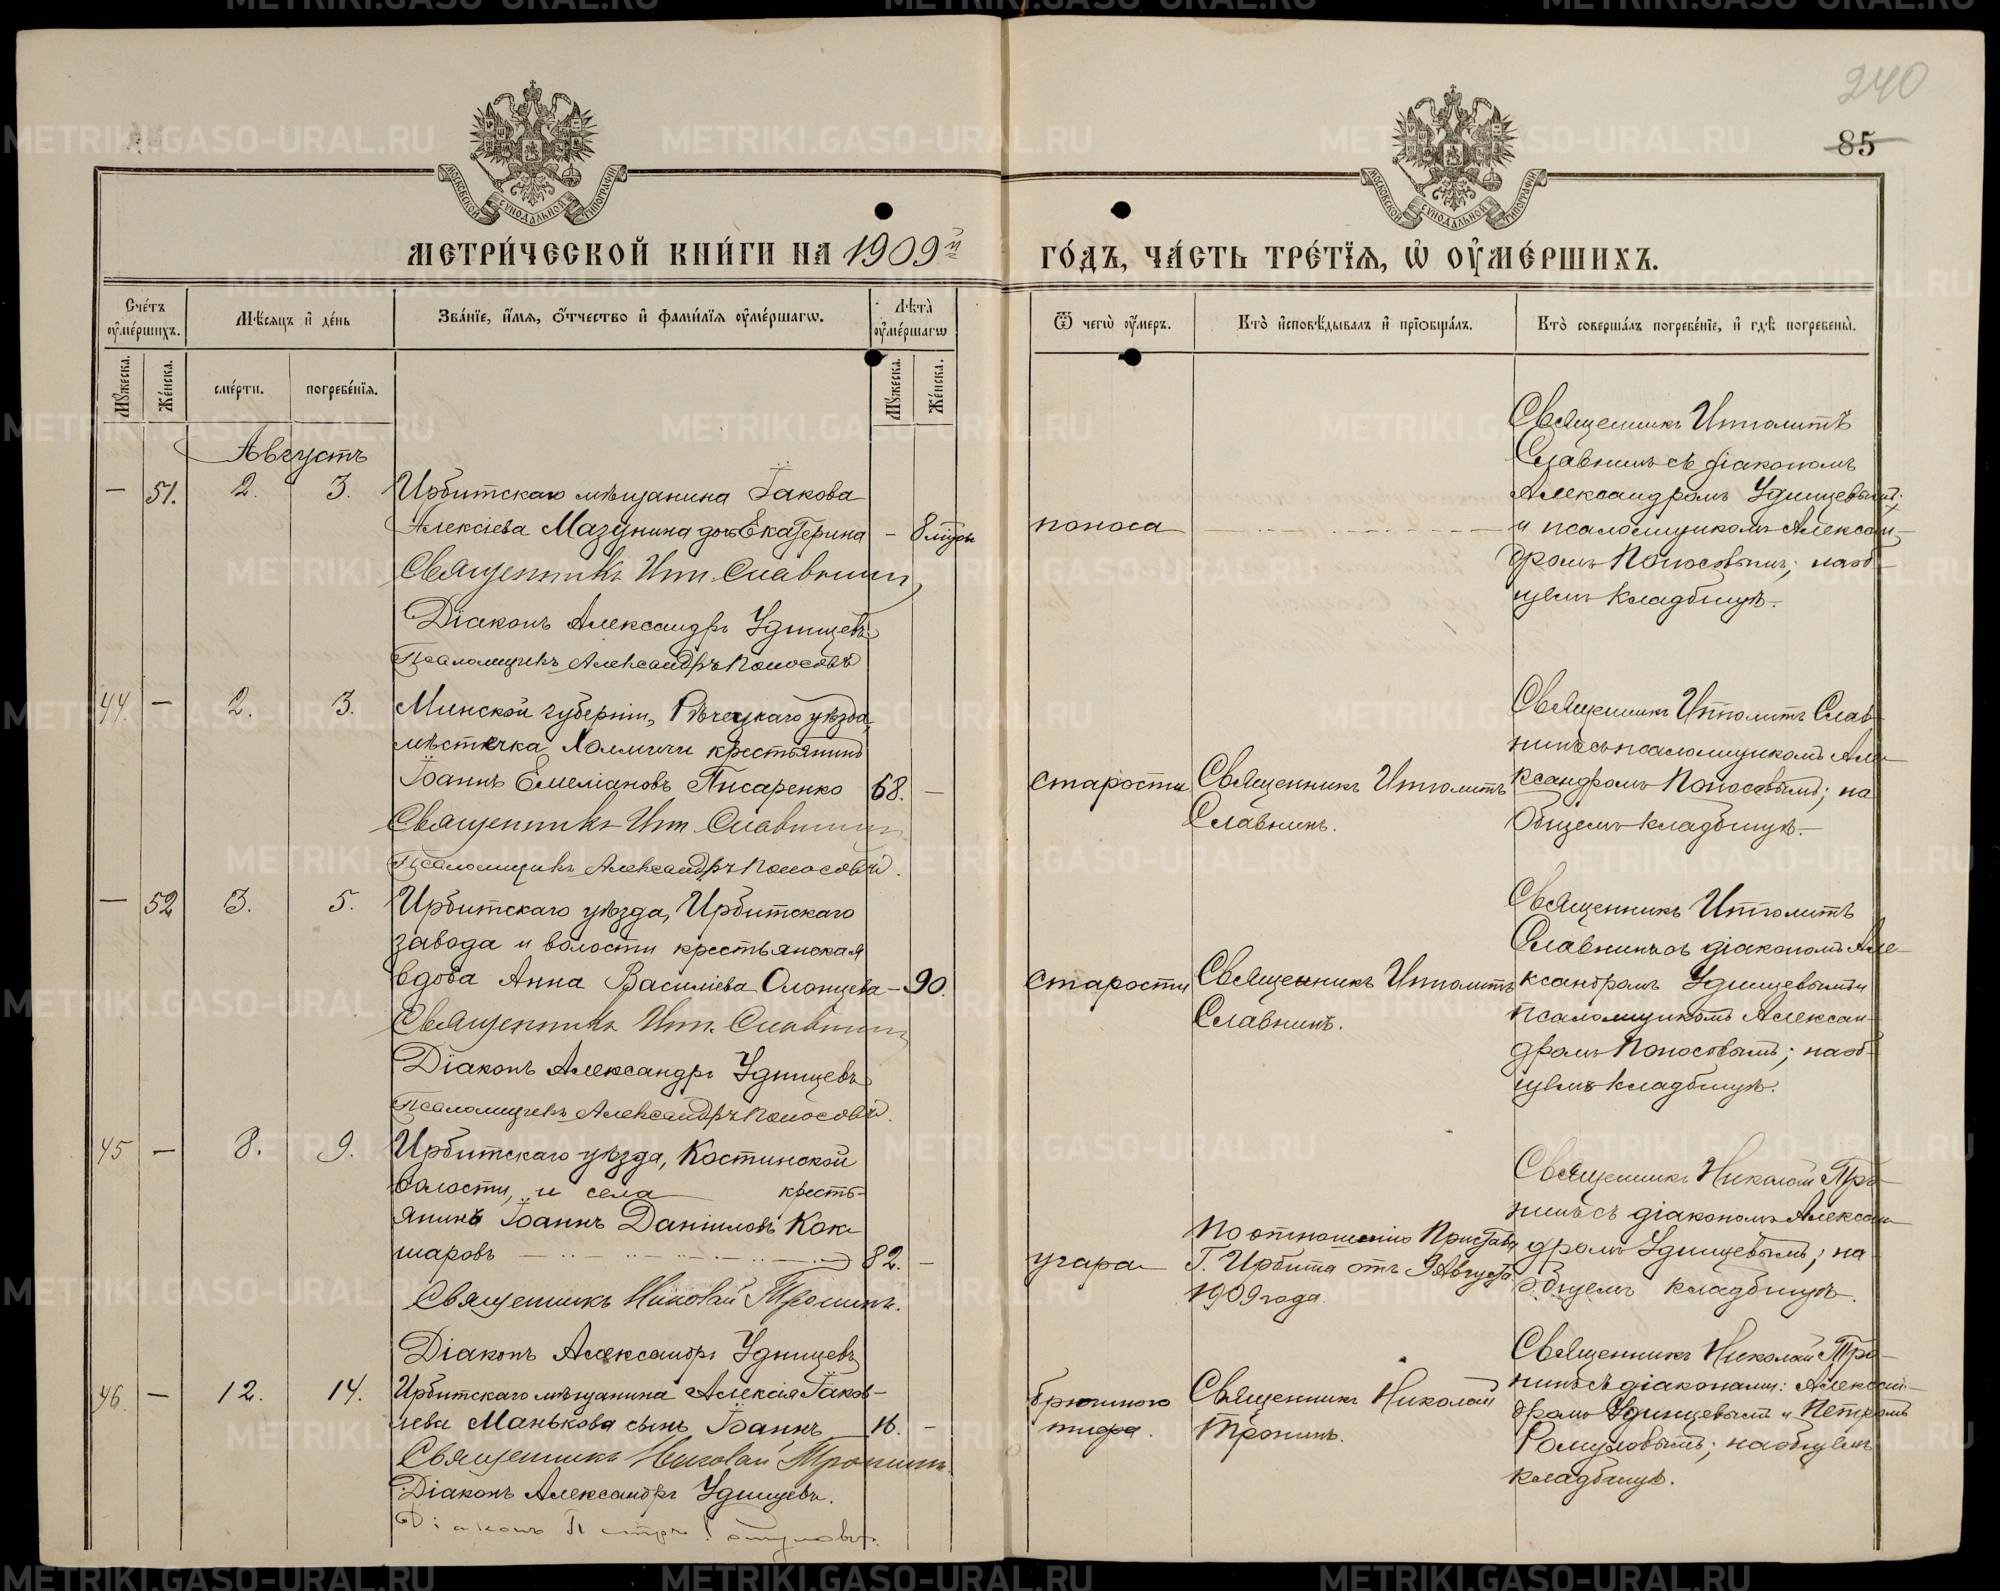 240
85
МЕТРИ́ЧЕСКОЙ КНИ́ГИ НА 1909й
ГО́ДЪ, ЧА́СТЬ ТРЕ́ТІѦ, Ѽ ОУ҆МЕ́РШИХЪ.
Сче́тъ оу҆ме́ршихъ.
Мѣ́сяцъ и҆ де́нь
Зва́нїе, и҆́мѧ, ѻ҆́тчество и҆ фами́лїѧ оу҆ме́ршагѡ.
Лѣ́та оу҆ме́ршагѡ
Ѿ чегѡ̀ оу҆́меръ.
Кто̀ и҆сповѣ́дывалъ и҆ прїѡбща́лъ.
Кто̀ соверша́лъ погребе́нїе, и҆ гдѣ̀ погребены̀.
Мꙋ́жеска.
Же́нска.
сме́рти.
погребе́нїѧ.
Мꙋ́жеска.
Же́нска.
Августъ
— 51. 2. 3.
Ирбитскаго мѣщанина Іакова
Алексіева Мазунина дочь Екатерина — 8 мѣс
Священникъ Ип. Славнинъ
Діаконъ Александръ Удинцевъ
Псаломщикъ Александръ Поносовъ
поноса
Священникъ Ипполитъ
Славнинъ съ діакономъ
Александромъ Удинцевымъ
и псаломщикомъ Алексан-
дромъ Поносовымъ; на об-
щемъ кладбищѣ.
44. — 2. 3.
Минской губерніи, Рѣчецкаго уѣзда,
мѣстечка Холмичи крестьянинъ
Іоаннъ Емеліановъ Писаренко 68. —
Священникъ Ип. Славнинъ
Псаломщикъ Александръ Поносовъ.
старости
Священникъ Ипполитъ
Славнинъ.
Священникъ Ипполитъ Слав-
нинъ съ псаломщикомъ Але-
ксандромъ Поносовымъ; на
общемъ кладбищѣ.
— 52 3. 5.
Ирбитскаго уѣзда, Ирбитскаго
завода и волости крестьянская
вдова Анна Василіева Олонцева — 90.
Священникъ Ип. Славнинъ
Діаконъ Александръ Удинцевъ
Псаломщикъ Александръ Поносовъ.
старости
Священникъ Ипполитъ
Славнинъ.
Священникъ Ипполитъ
Славнинъ съ діакономъ Але-
ксандромъ Удинцевымъ и
псаломщикомъ Алексан-
дромъ Поносовымъ; на об-
щемъ кладбищѣ.
45 — 8. 9.
Ирбитскаго уѣзда, Костинской
волости, и села кресть-
янинъ Іоаннъ Даніиловъ Кок-
шаровъ 82. —
Священникъ Николай Тронинъ.
Діаконъ Александръ Удинцевъ
угара
По отношенію Пристава
Г. Ирбита отъ 9 Августа
1909 года.
Священникъ Николай Тро-
нинъ съ діакономъ Алексан-
дромъ Удинцевымъ; на
общемъ кладбищѣ.
46. — 12. 14.
Ирбитскаго мѣщанина Алексія Іаков-
лева Манькова сынъ Іоаннъ 16. —
Священникъ Николай Тронинъ.
Діаконъ Александръ Удинцевъ.
Діаконъ Петръ Ромуловъ.
брюшного
тифа.
Священникъ Николай
Тронинъ.
Священникъ Николай Тро-
нинъ съ діаконами: Алексан-
дромъ Удинцевымъ и Петромъ
Ромуловымъ; на общемъ
кладбищѣ.